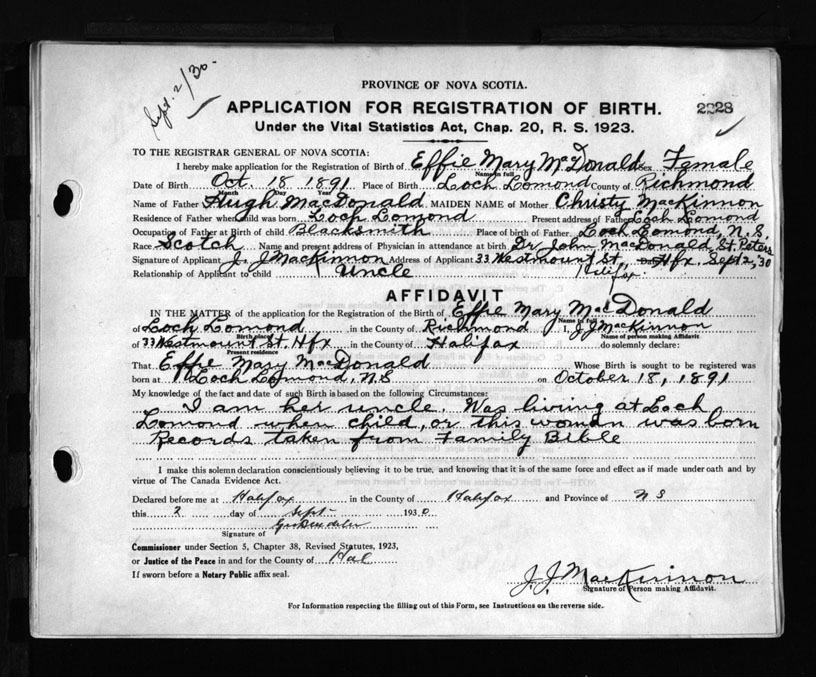 Sept. 2/30.
PROVINCE OF NOVA SCOTIA.
APPLICATION FOR REGISTRATION OF BIRTH. 2228
Under the Vital Statistics Act, Chap. 20, R. S. 1923.
TO THE REGISTRAR GENERAL OF NOVA SCOTIA:
I hereby make application for the Registration of Birth of Effie Mary McDonald Sex Female
Name in full
Date of Birth Oct. 18 1891 Place of Birth Loch Lomond County of Richmond
Month Day Year
Name of Father Hugh MacDonald MAIDEN NAME of Mother Christy MacKinnon
Residence of Father when Child was born Loch Lomond Present address of Father Loch Lomond
Occupation of Father at Birth of child Blacksmith Place of birth of Father Loch Lomond, N.S.
Race Scotch Name and present address of Physician in attendance at birth Dr John MacDonald, St. Peters
Signature of Applicant J. J MacKinnon Address of Applicant 33 Westmount St., Date Hfx. Sept 2, '30
Relationship of Applicant to child Uncle Halifax
AFFIDAVIT
IN THE MATTER of the application for the Registration of the Birth of Effie Mary MacDonald
Name in full
of Loch Lomond in the County of Richmond I, J J MacKinnon
Birth place Name of person making Affidavit
of 33 Westmount St. Hfx in the County of Halifax do solemnly declare:
Present residence
That Effie Mary MacDonald Whose Birth is sought to be registered was
born at Loch Lomond, N.S on October 18, 1891
My knowledge of the fact and date of such Birth is based on the following Circumstances:
I am her uncle. Was living at Loch
Lomond when child, or this woman was born
Records taken from Family Bible
I make this solemn declaration conscientiously believing it to be true, and knowing that it is of the same force and effect as if made under oath and by
virtue of The Canada Evidence Act.
Declared before me at Halifax in the County of Halifax and Province of N S
this 2 day of Sept 1930
Signature of
Commissioner under Section 5, Chapter 38, Revised Statutes, 1923,
or Justice of the Peace in and for the County of Hal
If sworn before a Notary Public affix seal.
J. J. MacKinnon
Signature of Person making Affidavit.
For Information respecting the filling out of this Form, see Instructions on the reverse side.